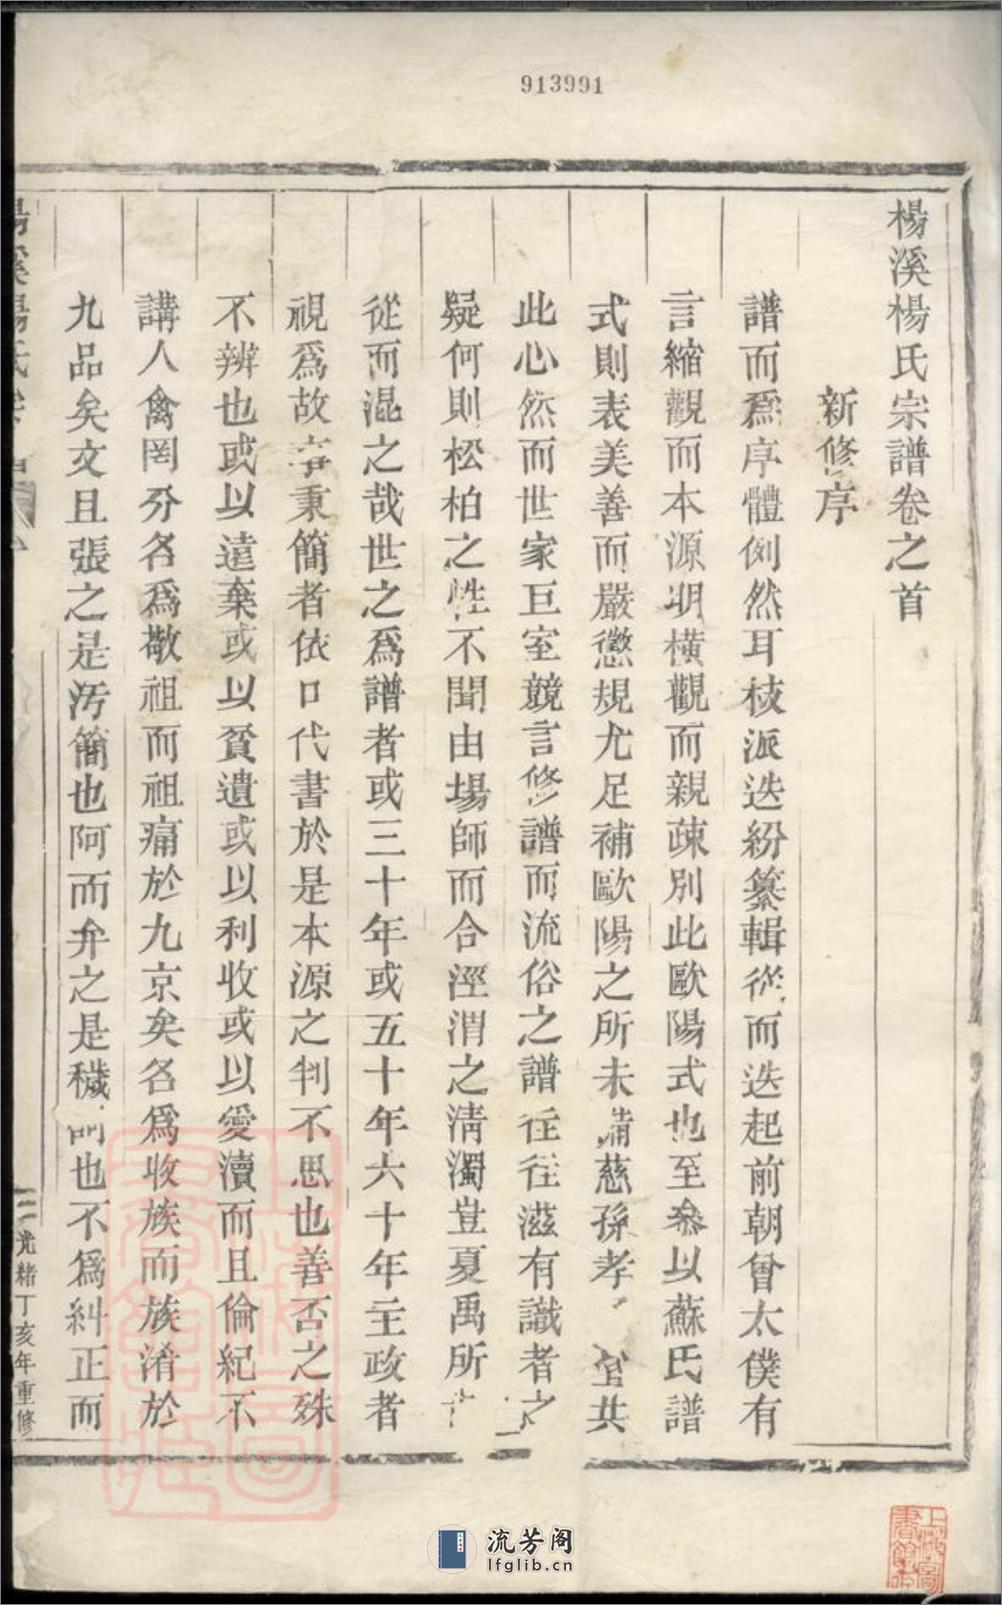 913991
楊溪楊氏宗譜卷之首
新修序
譜而爲序體例然耳枝派迭紛纂輯從而迭起前朝曾太僕有
言縮觀而本源明橫觀而親疎別此歐陽式也至叅以蘇氏譜
式則表美善而嚴懲規尤足補歐陽之所未備慈孫孝宜共
此心然而世家巨室競言修譜而流俗之譜往往滋有識者之
疑何則松柏之性不聞由場師而合涇渭之淸濁豈夏禹所
從而混之哉世之爲譜者或三十年或五十年六十年主政者
視爲故事秉簡者依口代書於是本源之判不思也善否之殊
不辨也或以遠棄或以貧遺或以利收或以愛瀆而且倫紀不
講人禽罔分名爲敬祖而祖痛於九京矣名爲收族而族淆於
九品矣文且張之是汚簡也阿而弁之是穢詞也不爲糾正而
楊溪楊氏宗
光緖丁亥年重修
上海圖書館藏
流芳阁
lfglib.cn